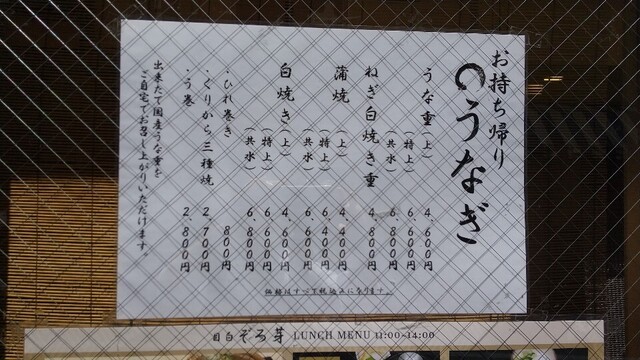 お持ち帰り
のうなぎ
うな重(上) 4.600円
(特上) 6.600円
(共水) 6.800円
ねぎ白焼き重 4.800円
蒲焼(上) 4.400円
(特上) 6.400円
(共水) 6.600円
白焼き(上) 4.600円
(特上) 6.600円
(共水) 6.800円
・ひれ巻き 800円
・くりから三種焼 2.700円
・う巻 2.800円
出来たて国産うな重を
ご自宅でお召し上がりいただけます。
価格はすべて税込みになります。
目白 ぞろ芽 LUNCH MENU 11:00-14:00